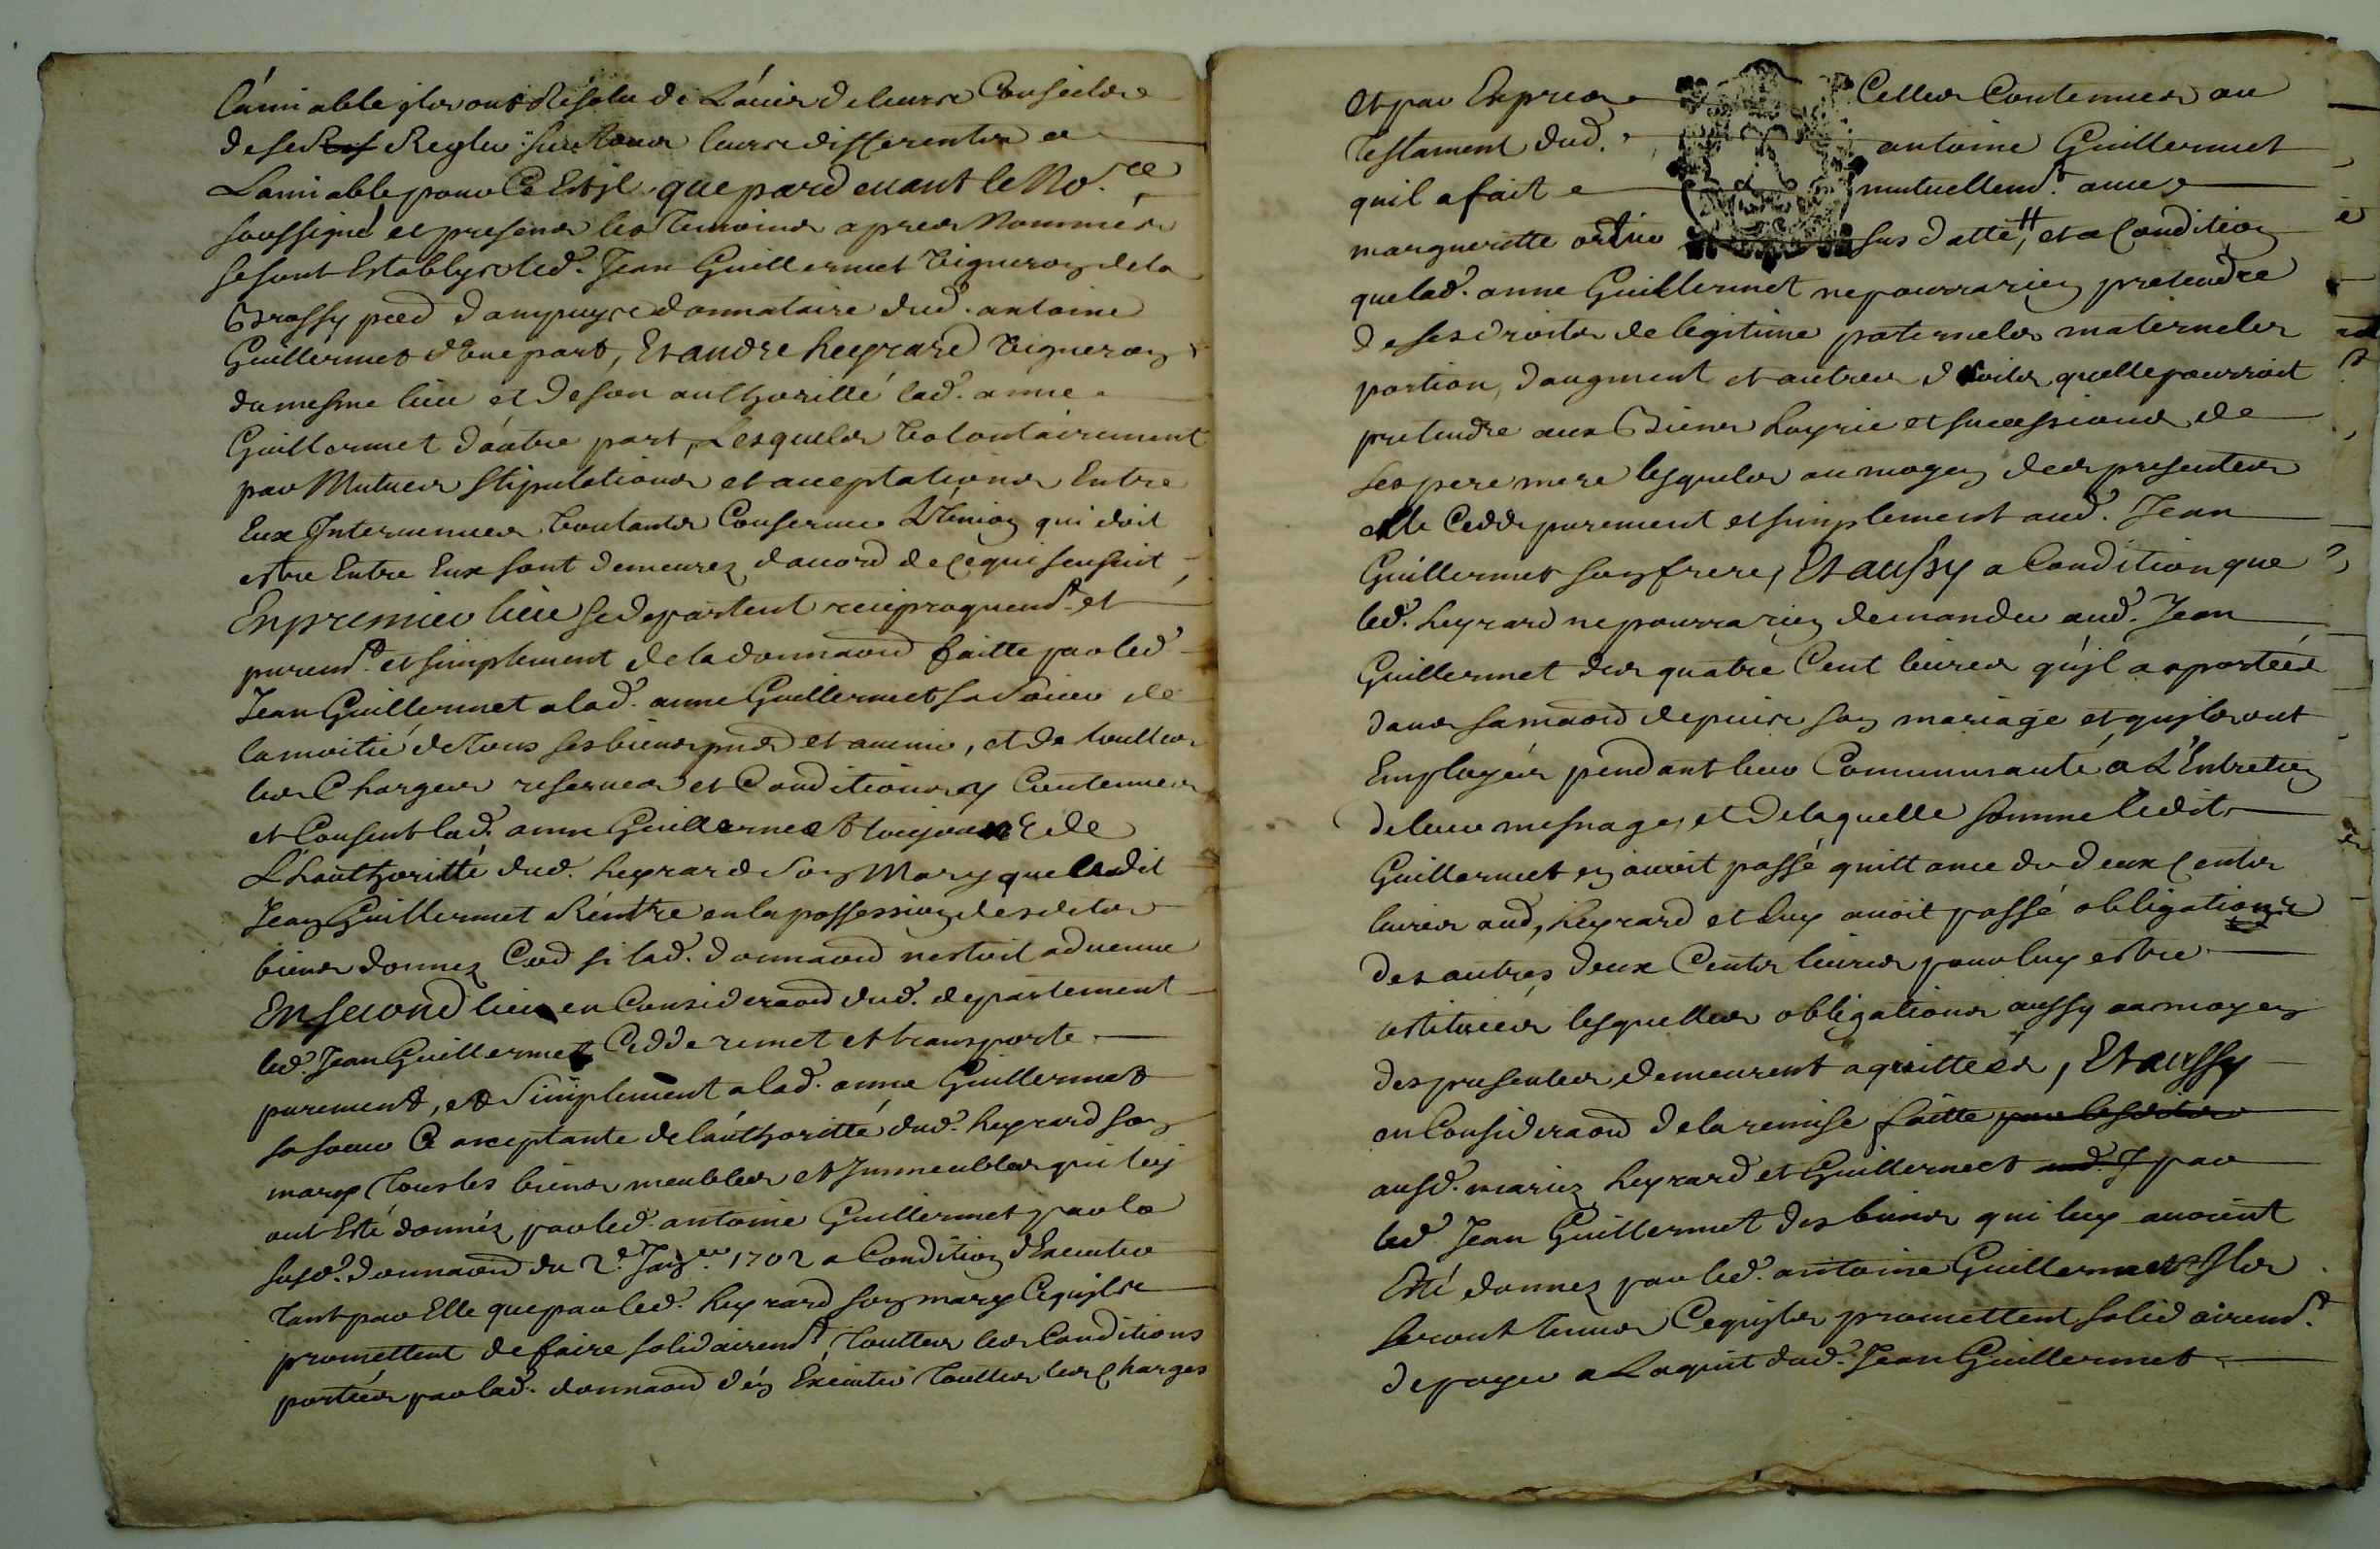 L'amiable ils ont Résolu de L'auis de leurs Conseilz
de se Regler sur tous leurs differentz a
Lamiable pour Ce Est jl que pard euant le No.re
soussigné et presens les Temoins apres Nommés
se sont Establys led. Jean Guillermet Vigneron de la
Brossy parr d'ampuys donnataire dud. antoine
Guillermet d'Une part, Et andre heyrard Vigneron
du mesme lieu et de son authoritté lad. anne
Guillermet d'autre part, Lesquels Volontairement
par Mutues stipulations et acceptations Entre
Eux Interuenues Voulants Conseruer L'Union qui doit
estre Entre Eux sont demeurez d'acord de ce qui sensuit
En premier lieu se departent reciproquemt. et
puremt. et simplement de la donnaõn faitte par led
Jean Guillermet a lad. anne Guillermet sa Soeur de
la moitié de Tous ses biens pnts et auenir, et de touttes
les Charges reserues et Conditions y Contenues
et Consent lad. anne Guillermet toujours de
L'hauthoritté dud. heyrard son Mary que ledit
Jean Guillermet Réntre en la possession desdits
biens donnez Comme si lad. donnaõn nestoit aduenue
En second lieu en Consideraõn dud. departement
led. Jean Guillermet Cedde remet et transporte
purement, et Simplement a lad. anne Guillermet
sa soeur acceptante de l'authoritté dud. heyrard son
mary Tous les biens meubles et Immeubles qui luy
ont Esté donnés par led. antoine Guillermet par la
susd. donnaõn du 2.e Janv.er 1702 a Condition d'Executer
Tant par Elle que par led. heyrard son mary Ce quils
promettent de faire solidairemt. Touttes les Conditions
portées par lad. donnaõn d'en Exécuter Touttes les Charges
Et par Expres Celles Contenues au
Testament dud. antoine Guillermet
quil a fait mutuellemt. auec
margueritte sus datté, et a Condition
que lad. anne Guillermet ne pourra rien pretendre
de ses droits de legitime paternels maternels
portion, d'augment et autres droits quelle pourroit
pretendre aux Biens hoyrie et sucessions de
ses pere mere lesquels au moyen des presentes
elle Cedde purement et simplement aud. Jean
Guillermet son frere, Et aussy a Condition que
led. heyrard ne pourra rien demander aud. Jean
Guillermet des quatre Cent liures qu'il a aportées
dans sa maõn depuis son mariage et quils ont
Employés pendant leur Communauté a L'Entretien
de leur mesnage, et de laquelle somme ledit
Guillermet en auoit passé quittance de deux Cents
liures aud, heyrard et luy auoit passé obligations
des autres deux Cents liures pour luy estre
restituées lesquelles obligations aussy au moyen
des presentes demeurent aquittées, Et aussy
en Consideraõn de la remise faitte par lesdits
ausd. mariez heyrard et Guillermet aud. J par
led. Jean Guillermet des biens qui luy auoient
Esté donnez par led. antoine Guillermet Ils
seront Tenus Ce quils promettent solidairemt.
de payer a Laquit dud. Jean Guillermet